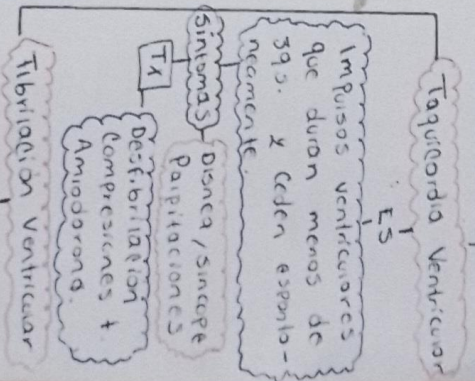 Taquicardia Ventricular
ES
Impulsos ventriculares
que duran menos de
390. y ceden esponta-
neamente.
Sintomas
Disnea, sincope
Palpitaciones
Tx
Desfibrilación
Compresiones +
Amiodorona.
Fibrilación Ventricular